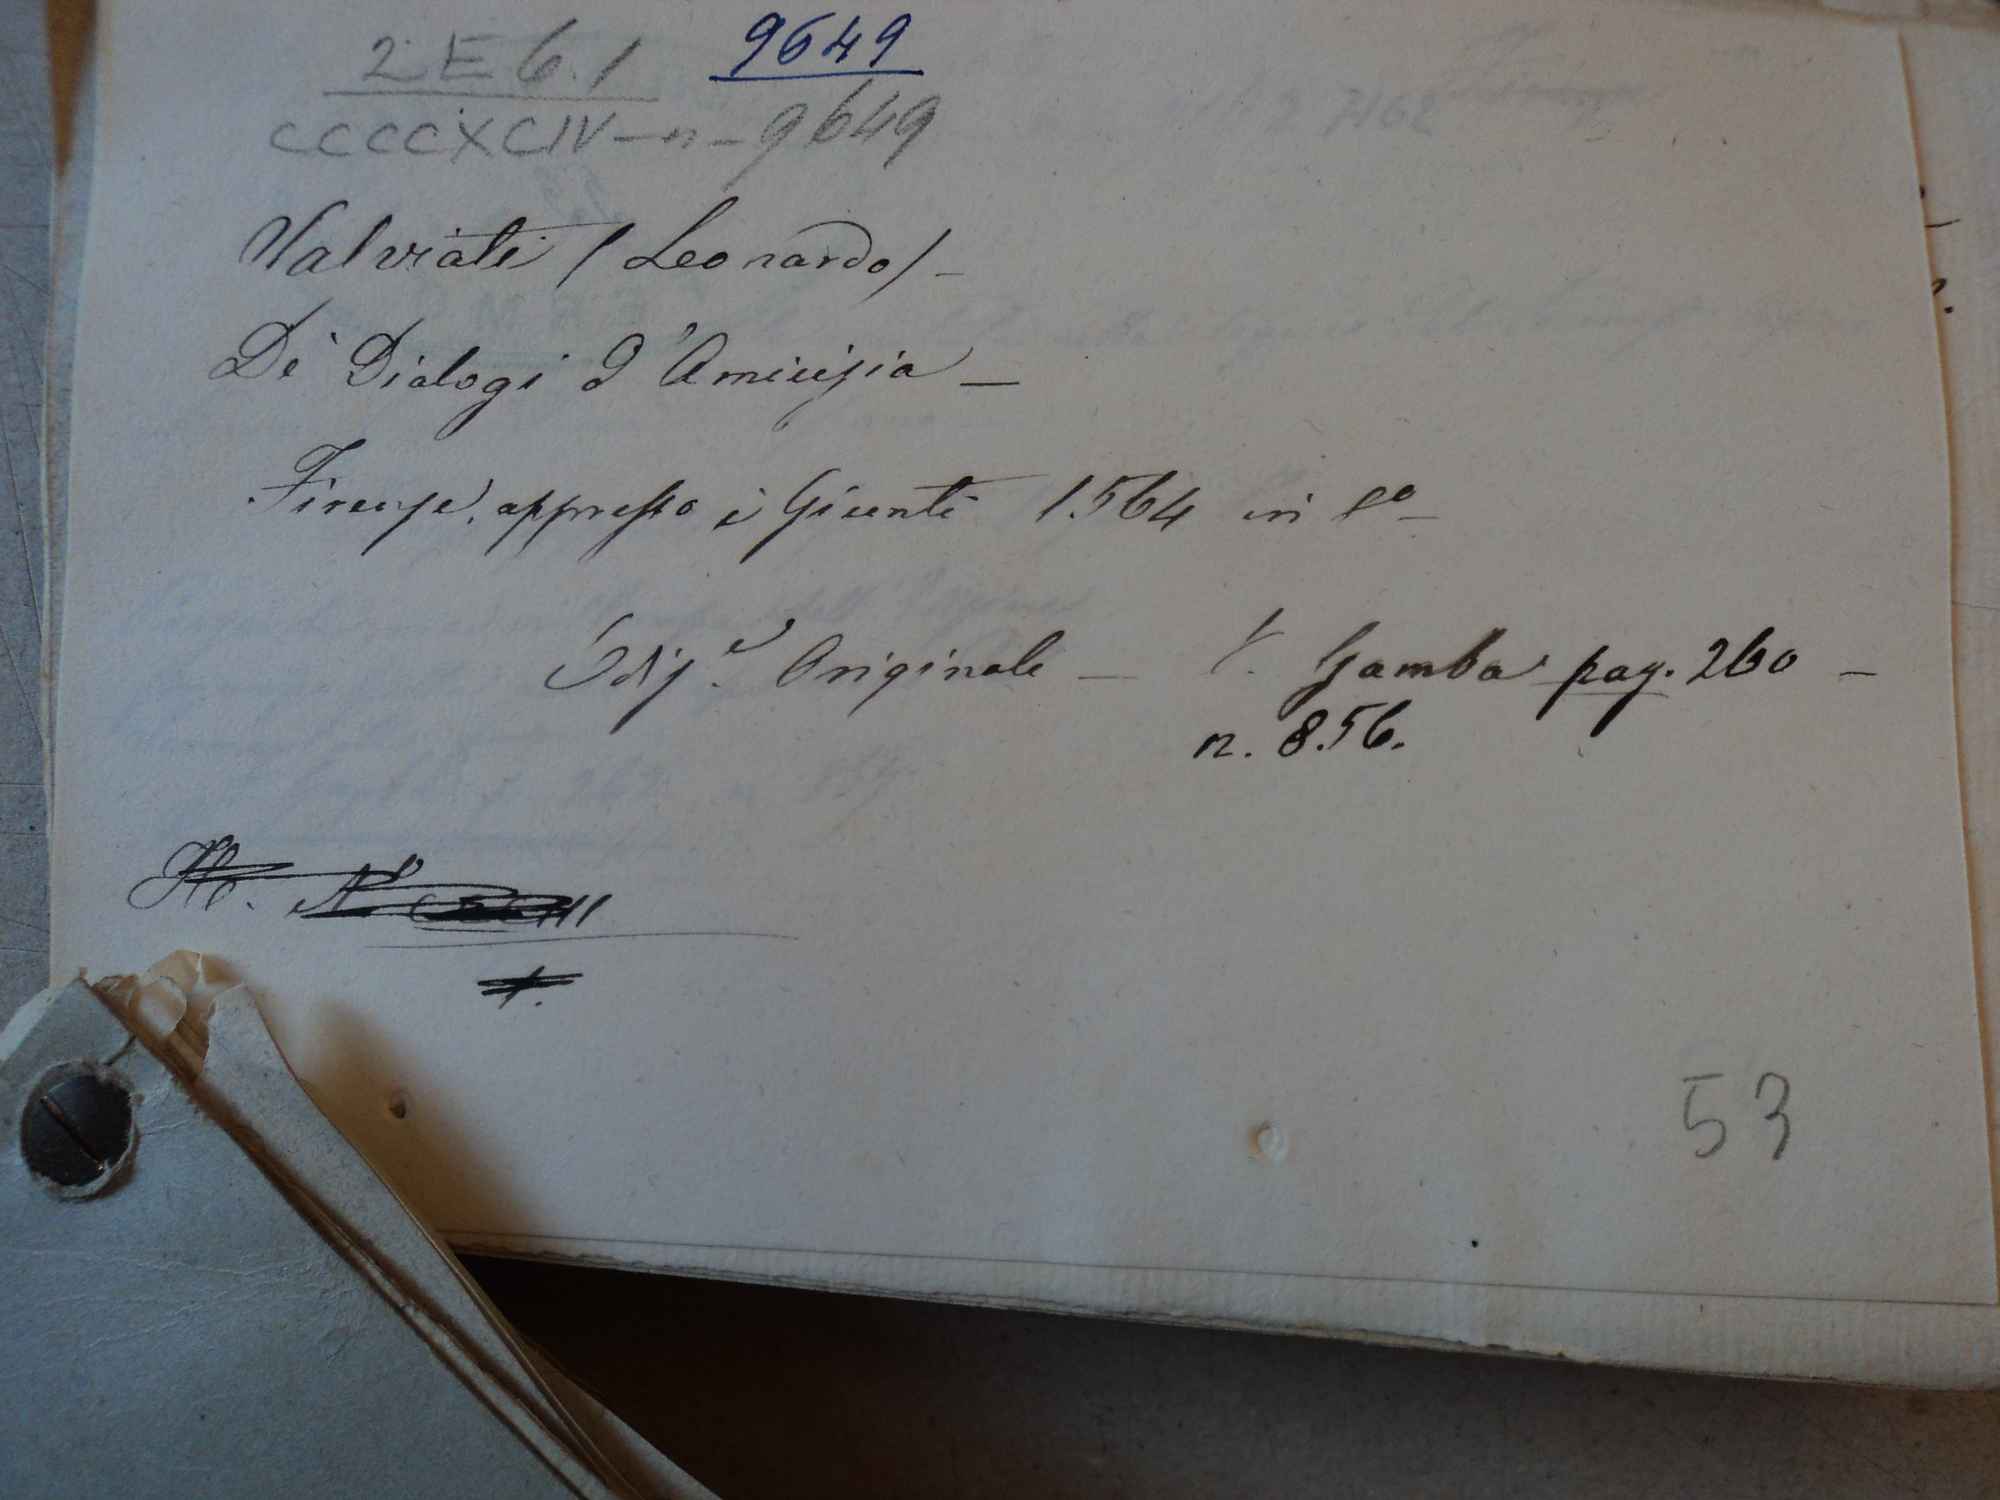 2 E 6. 1 9649
CCCCXCIV - n - 9649
Salviati (Leonardo) -
De' Dialogi d'Amicizia -
Firenze, appresso i Giunti 1564 in 8º -
Ediz.e Originale - V. Gamba pag. 260 -
n. 856.
53